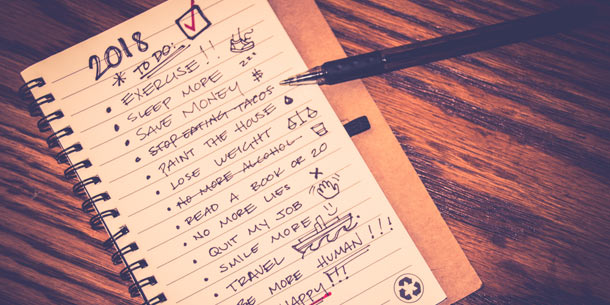 2018
* TO DO:
• EXERCISE!!
• SLEEP MORE zzz
• SAVE MONEY $
• STOP EATING TACOS
• PAINT THE HOUSE
• LOSE WEIGHT
• NO MORE ALCOHOL
• READ A BOOK OR 20
• NO MORE LIES
• QUIT MY JOB
• SMILE MORE
• TRAVEL
BE MORE HUMAN!!!
HAPPY!!!